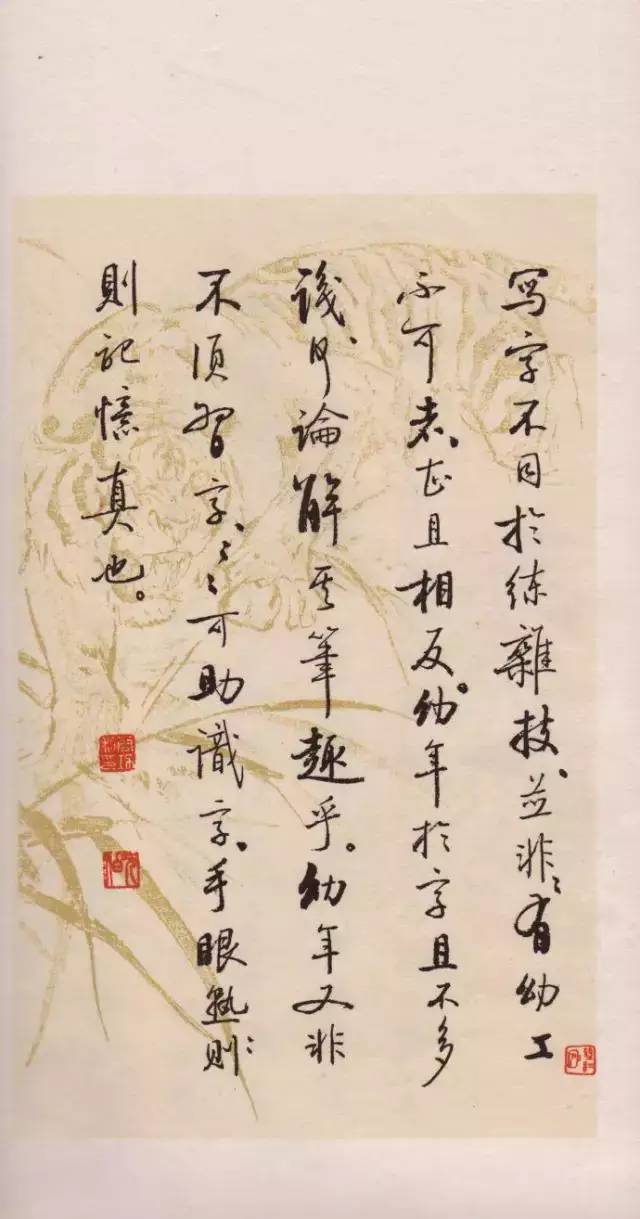 写字不同於练雜技、並非〻有幼工
不可者、甚且相反。幼年於字且不多
識、何論解其筆趣乎。幼年又非
不須習字、〻〻可助識字。手眼熟則
則記憶真也。